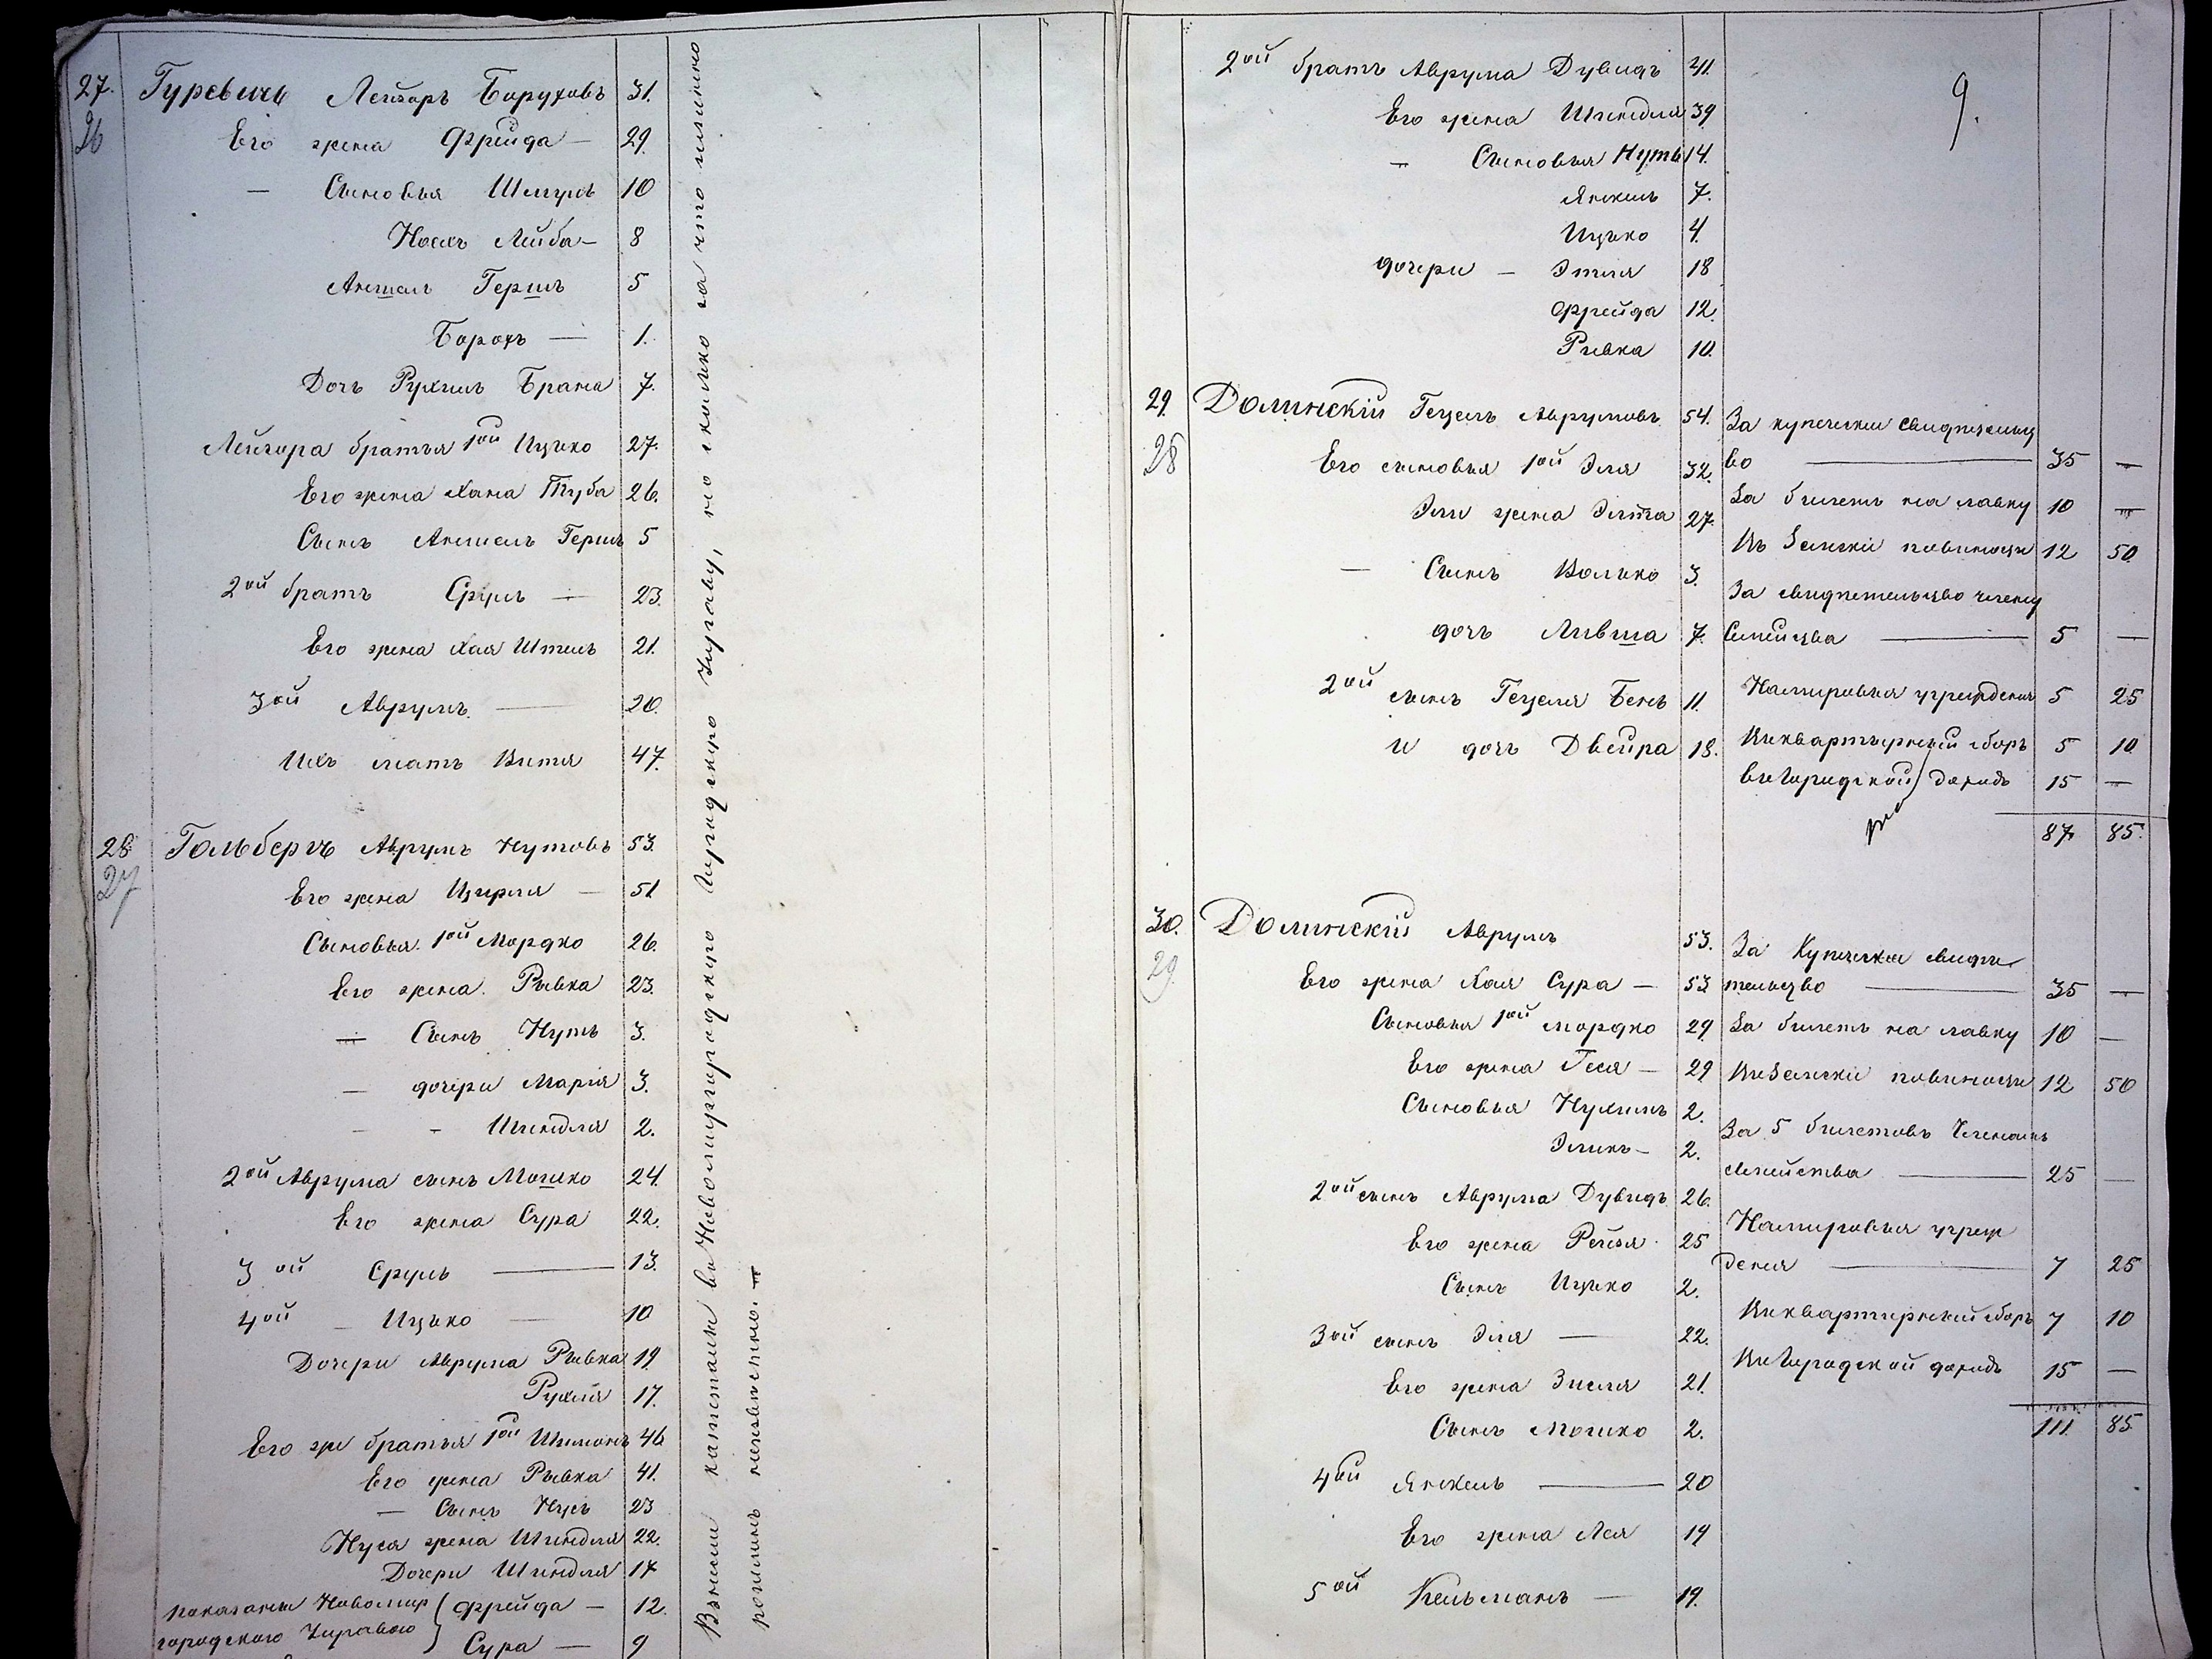 27. Гуревичъ Лейзоръ Боруховъ 31.
26 Его жена Фрейда — 29.
— Сыновья Шмуль 10
Носъ Лейба — 8
Аншель Гершъ 5
Борохъ — 1.
Дочь Рухиль Брана 7.
Лейзора братья 1ой Ицько 27.
Его жена Хана Тауба 26.
Сынъ Аншель Гершъ 5
2ой братъ Сруль — 23.
Его жена Хая Этель 21.
3ой Аврумъ — 20.
Ихъ мать Витя 47.
28 Гольбергъ Аврумъ Нутовъ 53.
27 Его жена Цирля — 51
Сыновья 1ой Мордко 26.
Его жена Рывка 23.
— Сынъ Нутъ 3.
— дочери Марія 3.
- - Шендля 2.
2ой Аврума сынъ Мошко 24.
Его жена Сура 22.
3ой Сруль — 13.
4ой — Ицько — 10
Дочери Аврума Рывка 19
Рухля 17.
Его же братья 1ой Шимонъ 46
Его жена Рывка 41.
— Сынъ Нусъ 23
Нуся жена Шендля 22.
Дочери Шендля 17
показаны Новомир Фрейда — 12.
городскою Управою Сура — 9
капиталы въ Новомиргородскую Городскую Управу, но сколько за что именно
пошлинъ неизвестно. —
9.
2ой братъ Аврума Дувидъ 41.
Его жена Шендля 39
— Сыновья Нутъ 14.
Янкель 7.
Ицько 4.
дочери — Этля 18
Фрейда 12.
Ривка 10.
29. Долинскій Гецель Аврумовъ 54. За купеческое свидетельст
28 Его сыновья 1ой Эля 32. во — 35 —
Эли жена Элька 27. За билетъ на лавку 10 —
Въ Земскіе повинности 12 50.
— Сынъ Волько 3.
За свидетельство члену
дочь Лившa 7. Семейства — 5 —
2ой сынъ Гецеля Бень 11. На мировыя учрежденія 5 25
и дочь Двейра 18. Въ квартирный сборъ 5 10
въ Городской доходъ 15 —
87 85.
30. Долинскій Аврумъ 53. За Купеческое свиде
29. Его жена Хая Сура — 53 тельство — 35 —
Сыновья 1ой Мордко 29 За билетъ на лавку 10 —
Его жена Геся — 29 Въ Земскіе повинности 12 50
Сыновья Нухимъ 2.
За 5 билетовъ Членамъ
Эликъ — 2.
семейства — 25 —
2ой сынъ Аврума Дувидъ 26.
На мировыя учреж
Его жена Рейзя 25
денія — 7 25
Сынъ Ицько 2.
Въ квартирный сборъ 7 10
3ой сынъ Эля — 22.
Въ Городской доходъ 15 —
Его жена Зисля 21.
111 85
Сынъ Мошко 2.
4ой Янкель — 20
Его жена Лея 19
5ой Кельманъ — 19.